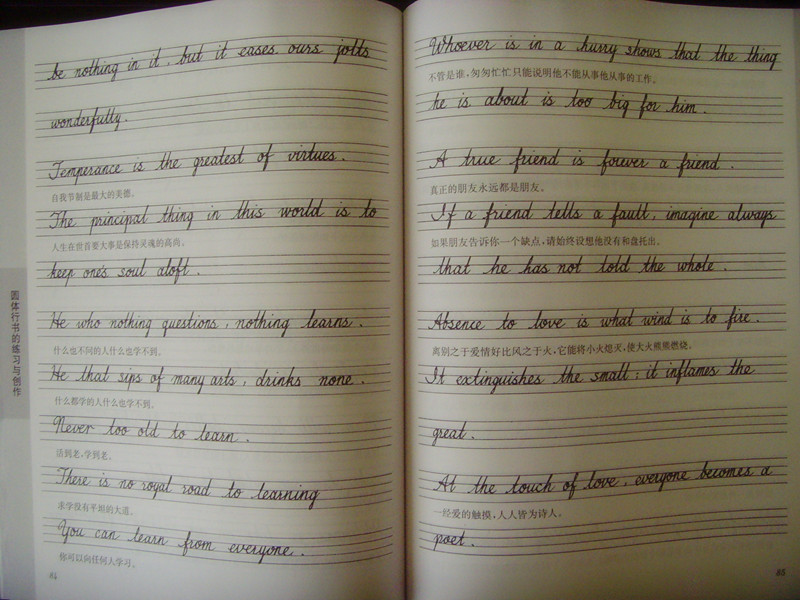 be nothing in it, but it eases ours jolts
wonderfully.
Temperance is the greatest of virtues.
自我节制是最大的美德。
The principal thing in this world is to
人生在世首要大事是保持灵魂的高尚。
keep one's soul aloft.
He who nothing questions, nothing learns.
什么也不问的人什么也学不到。
He that sips of many arts, drinks none.
什么都学的人什么也学不到。
Never too old to learn.
活到老,学到老。
There is no royal road to learning
求学没有平坦的大道。
You can learn from everyone.
你可以向任何人学习。
84
圆体行书的练习与创作
Whoever is in a hurry shows that the thing
不管是谁,匆匆忙忙只能说明他不能从事他从事的工作。
he is about is too big for him.
A true friend is forever a friend.
真正的朋友永远都是朋友。
If a friend tells a fault, imagine always
如果朋友告诉你一个缺点,请始终设想他没有和盘托出。
that he has not told the whole.
Absence to love is what wind is to fire.
离别之于爱情好比风之于火,它能将小火熄灭,使大火熊熊燃烧。
It extinguishes the small; it inflames the
great.
At the touch of love, everyone becomes a
一经爱的触摸,人人皆为诗人。
poet.
85